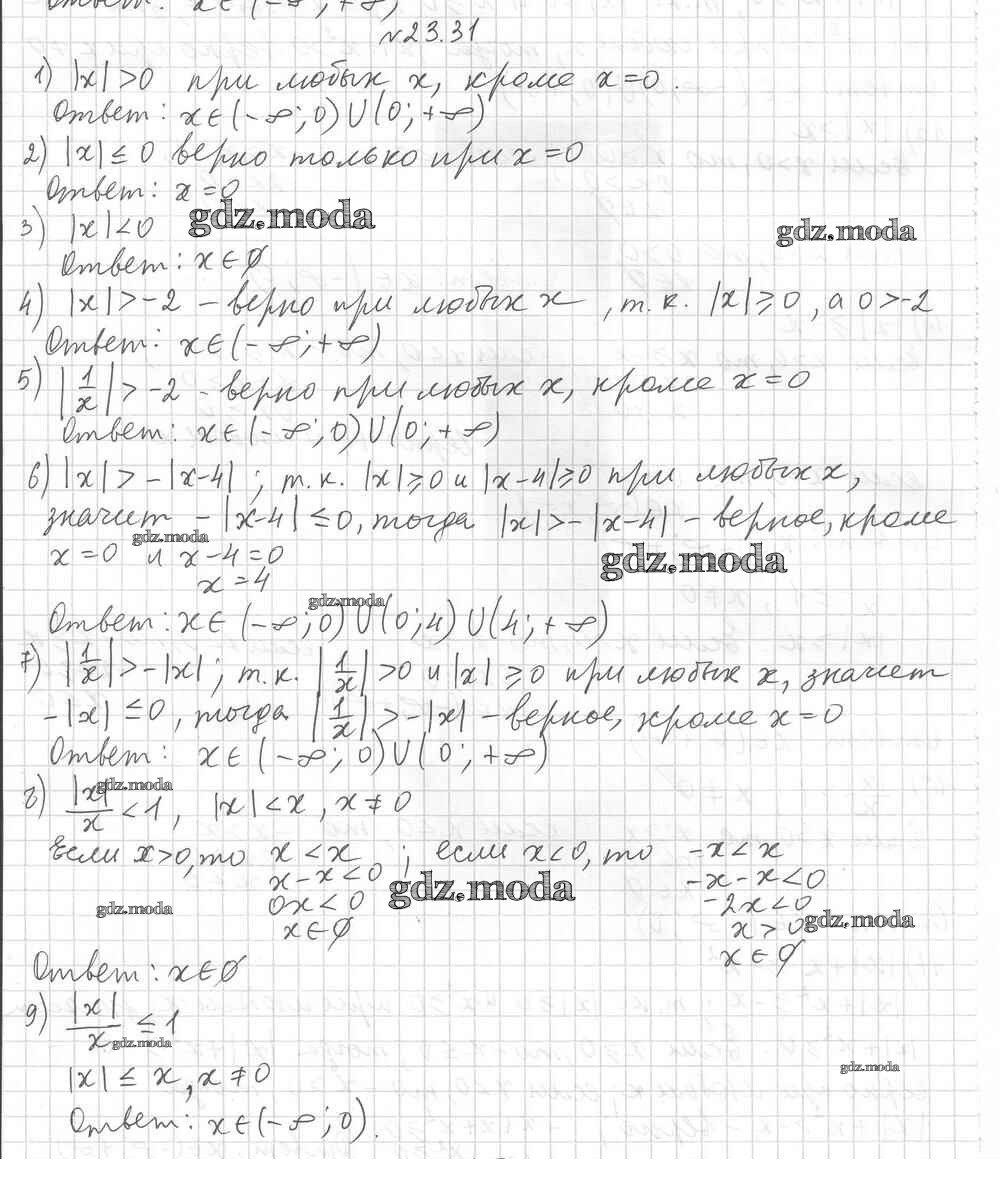 Ответ: x∈(-∞; +∞)
№23.31
1) |x|>0 при любых x, кроме x=0.
Ответ: x∈(-∞;0)∪(0;+∞)
2) |x|≤0 верно только при x=0
Ответ: x=0
gdz.moda
3) |x|<0
gdz.moda
Ответ: x∈∅
4) |x|>-2 – верно при любых x, т.к. |x|≥0, а 0>-2
Ответ: x∈(-∞;+∞)
5) |1/x|>-2 - верно при любых x, кроме x=0
Ответ: x∈(-∞;0)∪(0;+∞)
6) |x|>-|x-4|; т.к. |x|≥0 и |x-4|≥0 при любых x,
значит -|x-4|≤0, тогда |x|>-|x-4| – верное, кроме
gdz.moda
x=0 и x-4=0
gdz.moda
x=4
gdz.moda
Ответ: x∈(-∞;0)∪(0;4)∪(4;+∞)
7) |1/x|>-|x|; т.к. |1/x|>0 и |x|≥0 при любых x, значит
-|x|≤0, тогда |1/x|>-|x| – верное, кроме x=0
Ответ: x∈(-∞;0)∪(0;+∞)
gdz.moda
8) |x|/x<1, |x|<x, x≠0
Если x>0, то x<x; если x<0, то -x<x
x-x<0 -x-x<0
gdz.moda
gdz.moda
0x<0 -2x<0
gdz.moda
x∈∅ x>0
x∈∅
Ответ: x∈∅
9) |x|/x≤1
gdz.moda
gdz.moda
|x|≤x, x≠0
Ответ: x∈(-∞;0).